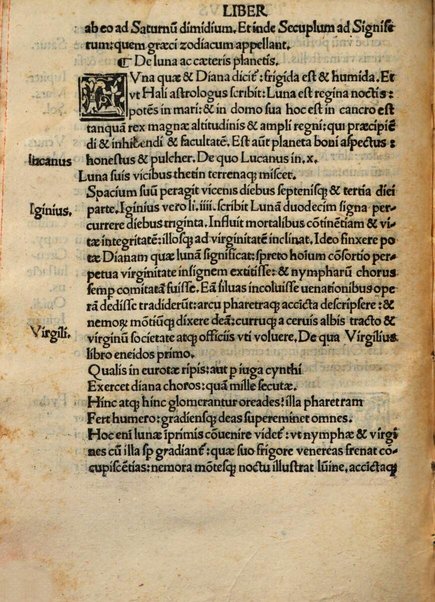 LIBER
ab eo ad Saturnū dimidium. Et inde Secuplum ad Signife
rum: quem græci zodiacum appellant.
¶ De luna ac cæteris planetis.
LVna quæ & Diana dicit᷑: frigida est & humida. Et
vt Hali astrologus scribit: Luna est regina noctis:
potēs in mari: & in domo sua hoc est in cancro est
tanquā rex magnæ altitudinis & ampli regni: qui præcipiē
di & inhibendi & facultatē. Est aūt planeta boni aspectus:
Lucanus
honestus & pulcher. De quo Lucanus in .x.
Luna suis vicibus thetin terrenaq3 miscet.
Spacium suū peragit vicenis diebus septenisq3 & tertia diei
Iginius,
parte. Iginius vero li. iiii. scribit Lunā duodecim signa per
currere diebus triginta. Influit mortalibus cōtinētiam & vi
tæ integritatē: illosq3 ad virginitatē inclinat. Ideo finxere po
etæ Dianam quæ lunā significat: spreto hoīum cōsortio per
petua virginitate insignem extitisse: & nympharū chorus
semp comitatā suisse. Eā siluas incoluisse uenationibus ope
rā dedisse tradiderūt: arcu pharetraq3 accicta descripsere: & 
nemorꝝ mōtiūq3 dixere deā: curruq3 a ceruis albis tracto &
Virgili.
virginū societate atq3 officiis vti voluere. De qua Virgilius
libro eneidos primo.
Qualis in eurotæ ripis: aut p iuga cynthi
Exercet diana choros: quā mille secutæ.
Hinc atq3 hinc glomerantur oreades: illa pharetram
Fert humero: gradiensq3 deas supereminet omnes.
Hoc eni lunæ īprimis cōuenire videt᷑: vt nymphæ & virgi
nes cū illa sp gradiant᷑: quæ suo frigore venereas frenat co
cupiscētias: nemora mōtesq3 noctu illustrat lūine, accictaq3